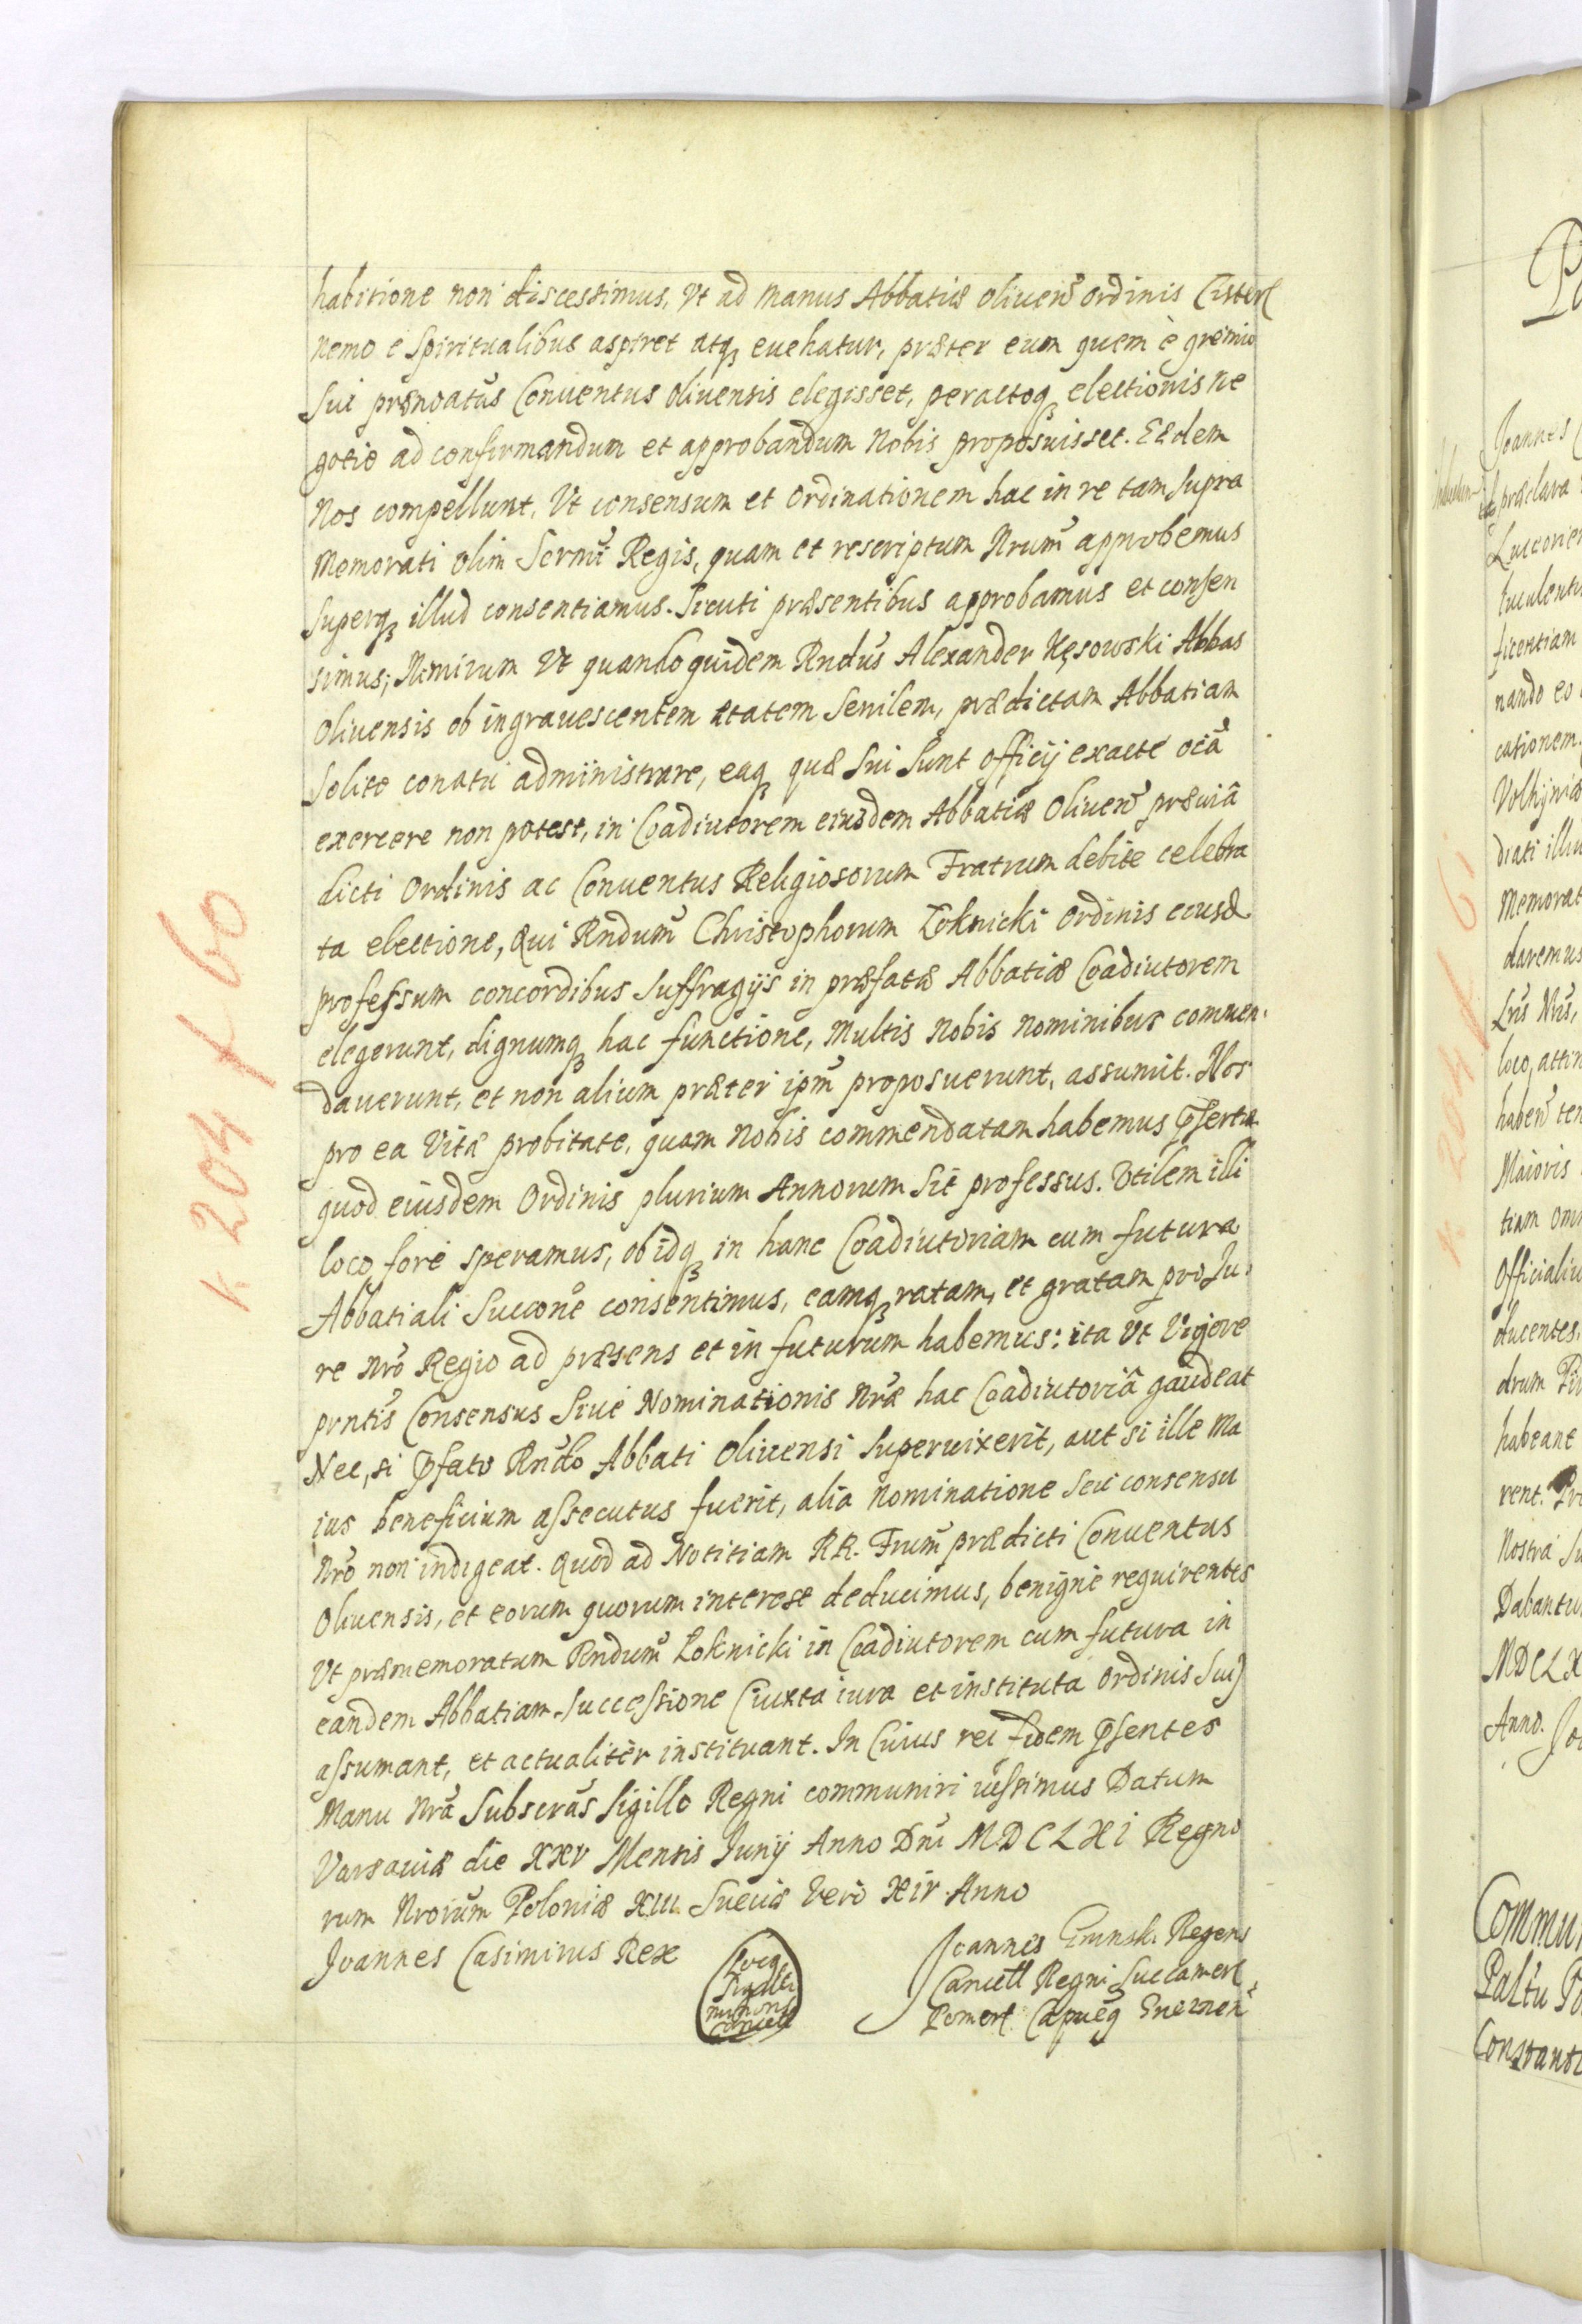 habitione non discessimus, Vt ad manus Abbatiæ Oliuen̄ Ordinis Cisterc̄
nemo e Spiritualibus aspiret atq̢ euehatur, præter eum quem è gremio
sui prænōatus Conuentus Oliuensis elegisset, peractoq̢ electionis ne
gotio ad confirmandum et approbandum nobis proposuisset. Eædem
nos compellunt, Vt consensum et ordinationem hac in re tam supra
memorati olim Serm̄i Regis, quam et rescriptum Nrūm approbemus
superq̢ illud consentiamus. Sicuti præsentibus approbamus et consen
simus; Nimirum Vt quandoquidem Rndūs Alexander Kęsowski Abbas
Oliuensis ob ingrauescentem ætatem senilem, prædictam Abbatiam
solito conatu administrare, eaq̢ quæ sui sunt officij exacte oīa
exercere non potest, in Coadiutorem eiusdem Abbatiæ Oliuen̄ præuiâ
dicti Ordinis ac Conuentus Religiosorum Fratrum debite celebra
ta electione, Qui Rndum̄ Christophorum Łoknicki Ordinis eiusd̄
professum concordibus suffragijs in præfatæ Abbatiæ Coadiutorem
elegerunt, dignumq̢ hac functione, multis nobis nominibus commen-
dauerunt, et non alium præter ipm̄ proposuerunt, assumit. Nos
pro ea Vitæ probitate, quam nobis commendatam habemus p̄sertim
quod eiusdem Ordinis plurium Annorum sit professus. Vtilem illi
loco fore speramus, ob idq̢ in hanc Coadiutoriam cum futura
Abbatiali Succōne consentimus, eamq̢ ratam, et gratam pro Ju-
re nrō Regio ad præsens et in futurum habemus: ita Vt Vigore
prntīs Consensus Siue Nominationis nrǣ hac Coadiutoriâ gaudeat
Nec, si p̄fato Rndō Abbati Oliuensi superuixerit, aut si ille ma
ius beneficium assecutus fuerit, alia nominatione seu consensu
nrō non indigeat. Quod ad Notitiam RR. Frum̄ prædicti Conuentus
Oliuensis, et eorum quorum interese deducimus, benignè requirentes
Vt præmemoratum Rndum̄ Łoknicki in Coadiutorem cum futura in
eandem Abbatiam successione (iuxta iura et instituta Ordinis sui)
assumant, et actualitèr instituant. In Cuius rei fidem p̄sentes
manu nrā subscrās sigillo Regni communiri iussimus Datum
Varsauiæ die XXV Mensis Junij Anno Dnī MDCLXI Regno
rum Nrorum̄ Poloniæ XIII Sueciæ Vero XIV Anno
Joannes Casimirus Rex
Locq̢
Sigilli
minoris
Cancell
Joannes Gninsk. Regens
Cancell Regni Succamerc̄
Pomerc̄ Capneq̢ Gneznen̄
k 204 f 60